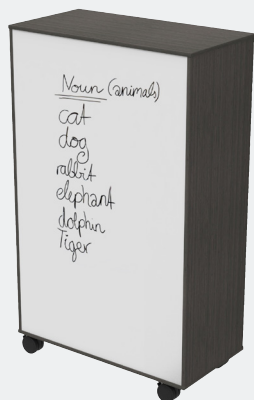 Noun (animals)
cat
dog
rabbit
elephant
dolphin
Tiger